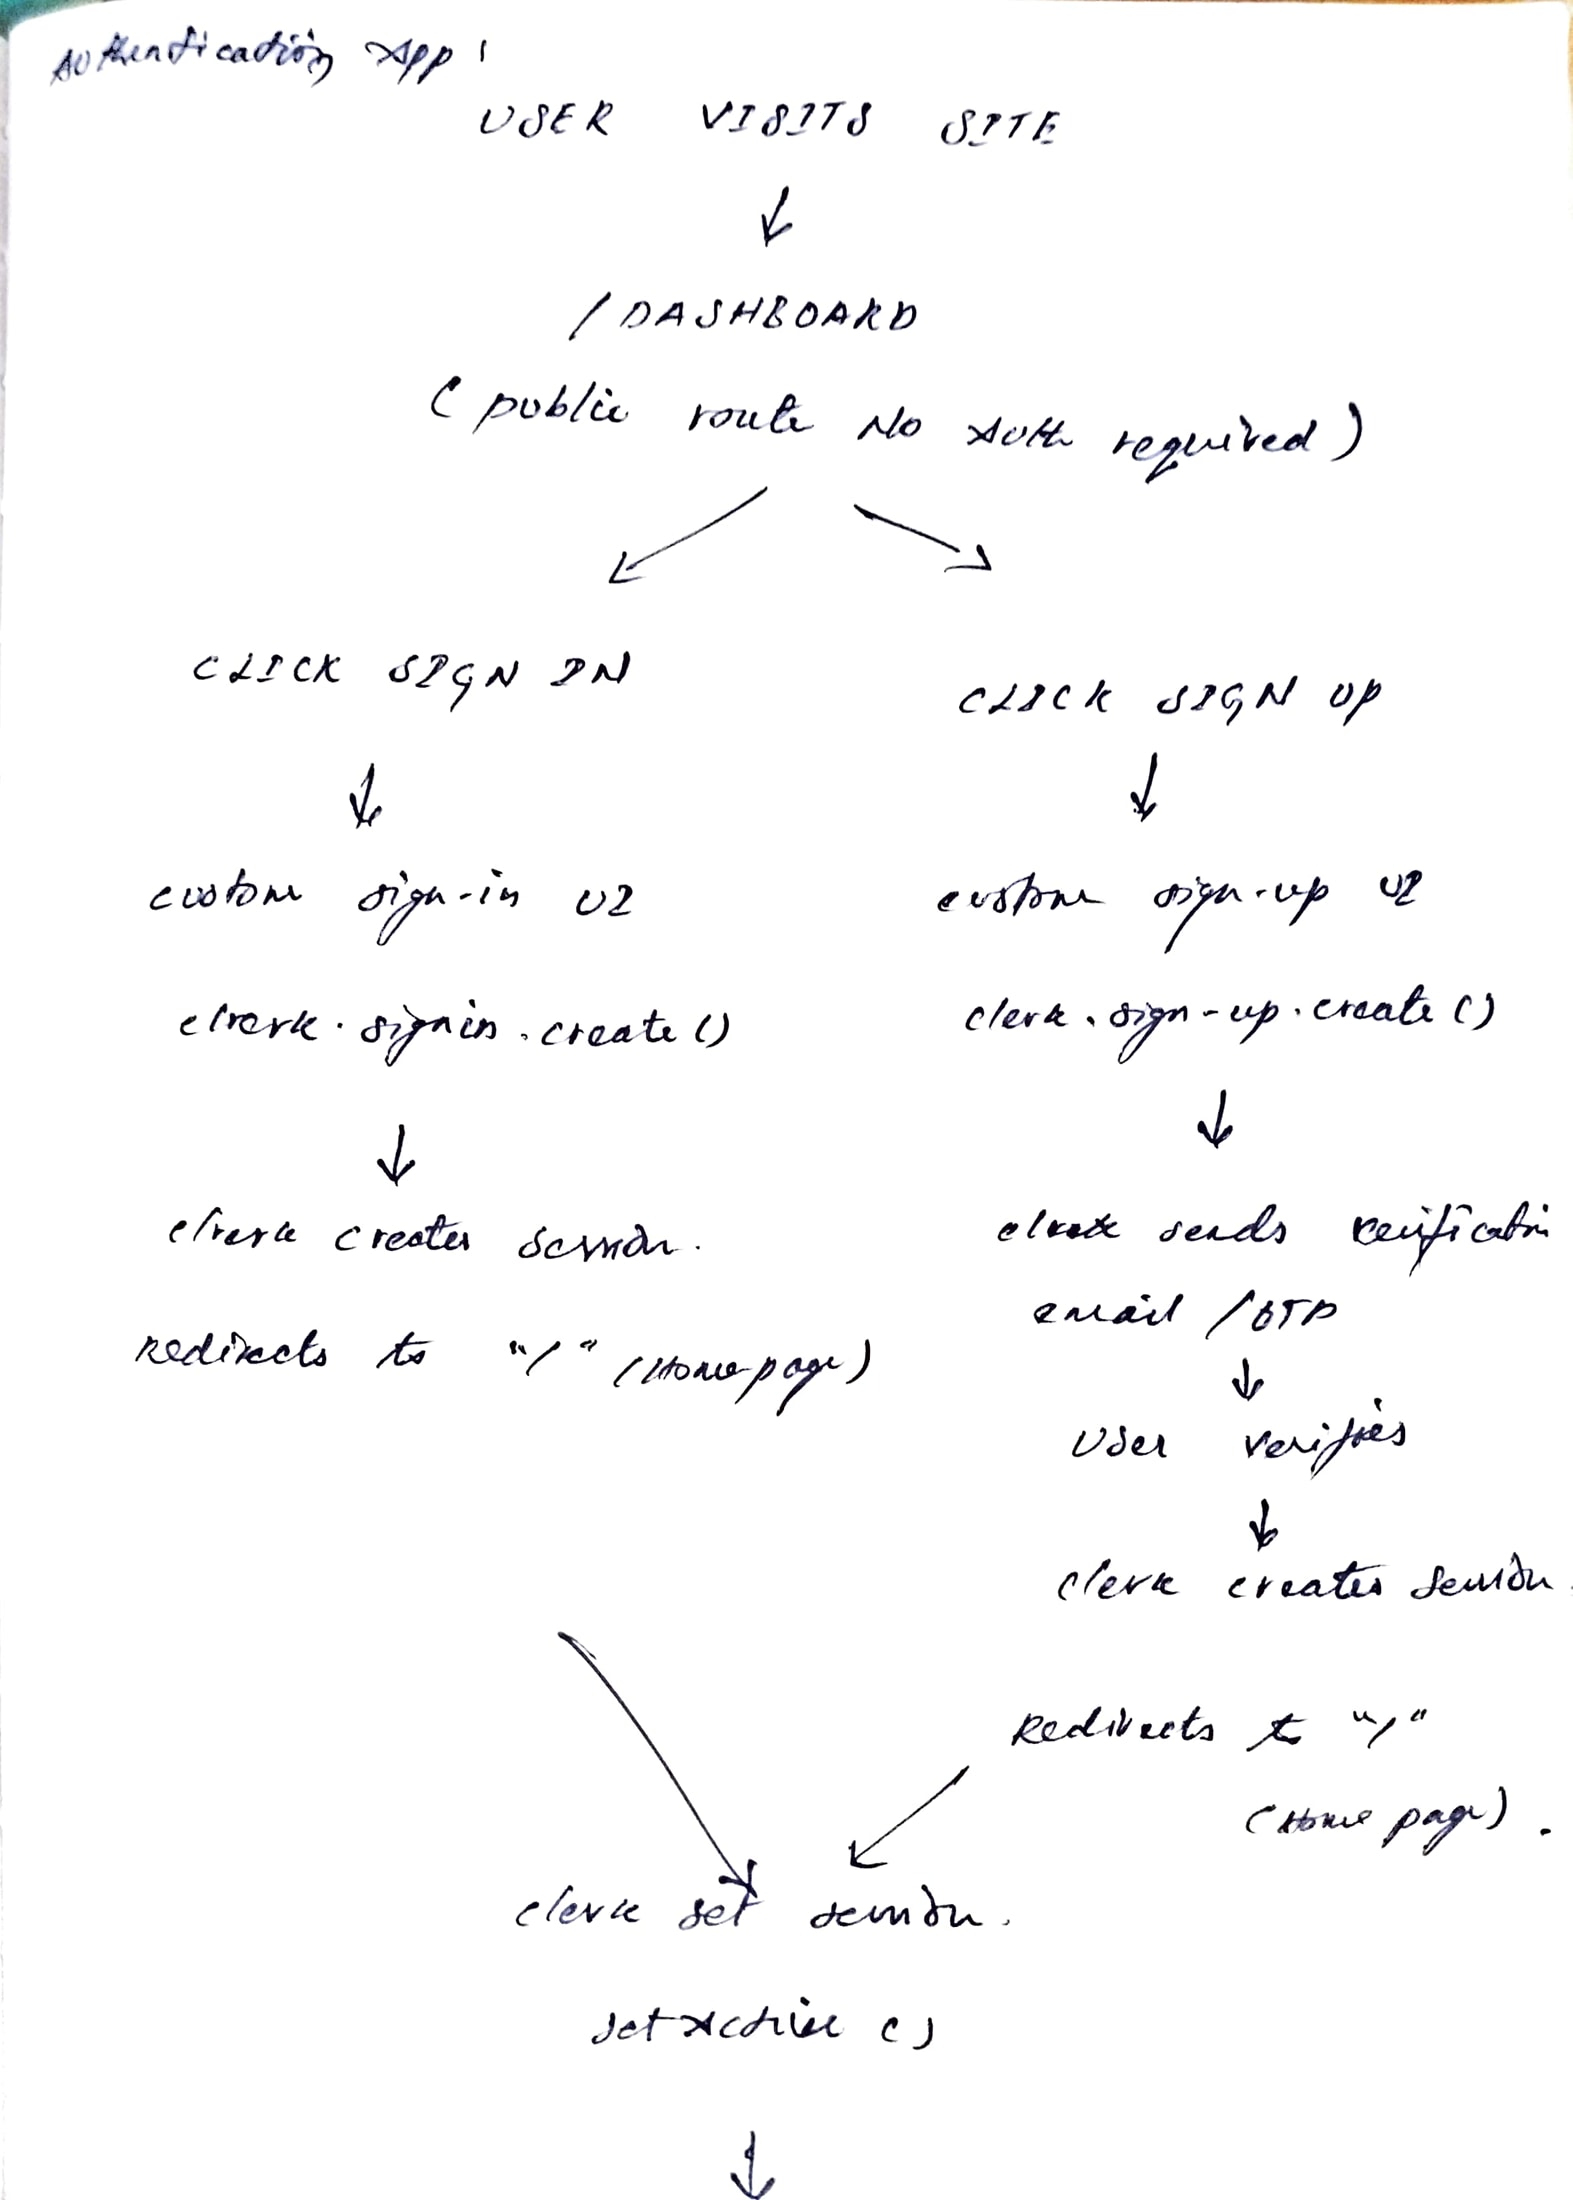 Authentication App :
USER VISITS SITE
↓
/DASHBOARD
( public route No Auth required )
CLICK SIGN IN
↓
custom sign-in UI
clrerk . signin . create ()
↓
clrerk creates session.
Redirects to "/" (Home page)
CLICK SIGN UP
↓
custom sign-up UI
clerk . sign-up . create ()
↓
sends verification
email / OTP
↓
User verifies
↓
clerk creates session.
Redirects to "/"
(Home page) .
clerk set session.
setActive ()
↓